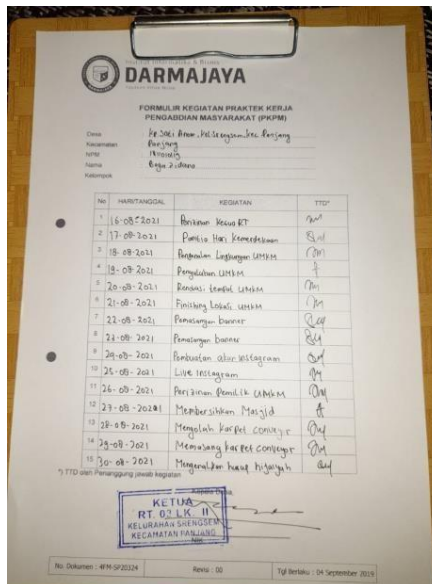 Institut Informatika & Bisnis
DARMAJAYA
Yayasan Alfian Husin
FORMULIR KEGIATAN PRAKTEK KERJA
PENGABDIAN MASYARAKAT (PKPM)
Desa : Kp. Jati Anom, Kel. Srengsem, Kec Panjang
Kecamatan : Panjang
NPM :
Nama : Bagu Zidane
Kelompok
No HARI/TANGGAL KEGIATAN TTD*
1 16-08-2021 Perizinan Ketua RT
2 17-08-2021 Panitia Hari Kemerdekaan
3 18-08-2021 Pengenalan Lingkungan UMKM
4 19-08-2021 Penyuluhan UMKM
5 20-08-2021 Renovasi tempat UMKM
6 21-08-2021 Finishing Lokasi UMKM
7 22-08-2021 Pemasangan banner
8 23-08-2021 Pemasangan banner
9 24-08-2021 Pembuatan akun instagram
10 25-08-2021 Live instagram
11 26-08-2021 Perizinan Pemilik UMKM
12 27-08-2021 Membersihkan Masjid
13 28-08-2021 Mengolah karpet conveyor
14 29-08-2021 Memasang karpet conveyor
15 30-08-2021 Mengenalkan huruf hijaiyah
*) TTD oleh Penanggung jawab kegiatan
Kepala Desa,
KETUA
RT. 02 LK. II
KELURAHAN SRENGSEM
KECAMATAN PANJANG
No. Dokumen : 4FM-SP20324 Revisi : 00 Tgl Berlaku : 04 September 2019